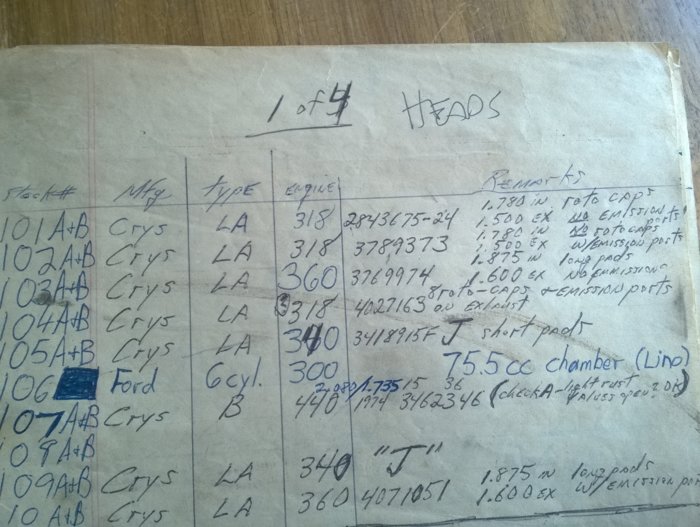 1 of 4 HEADS
Stock# Mfg TYPE ENGINE REMARKS
101A+B Crys LA 318 2843675-24 1.780 IN roto caps
1.500 EX NO EMISSION
102A+B Crys LA 318 3789373 1.780 IN NO roto caps
1.500 EX w/EMISSION ports
103A+B Crys LA 360 3769974 1.875 IN long pads
1.600 EX NO EMMISIONS
104A+B Crys LA 318 4027163 8 roto-caps + EMISSION ports
ON EXhaust
105A+B Crys LA 340 3418915F J short pads
106 Ford 6cyl. 300 75.5cc chamber (Lino)
2.080/1.735 15 36
107A+B Crys B 440 1974 3462346 (check A-light rust
valves open? OK)
109A+B
109A+B Crys LA 340 "J"
10 A+B Crys LA 360 4071051 1.875 IN long pads
1.600 EX w/EMISSION por